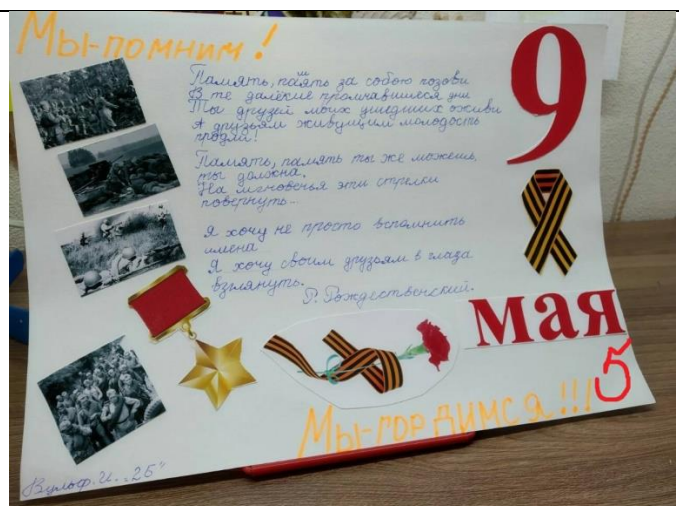 Мы-помним!
9
Память, память за собою позови
В те далёкие промчавшиеся дни
Ты друзей моих ушедших оживи
А друзьям живущим молодость
продли!
Память, память ты же можешь,
ты должна.
На мгновенья эти стрелки
повернуть...
Я хочу не просто вспомнить
имена
Я хочу своим друзьям в глаза
взглянуть.
Р. Рождественский.
мая
5
Мы-гордимся!!!
Вульф. И. „2Б"